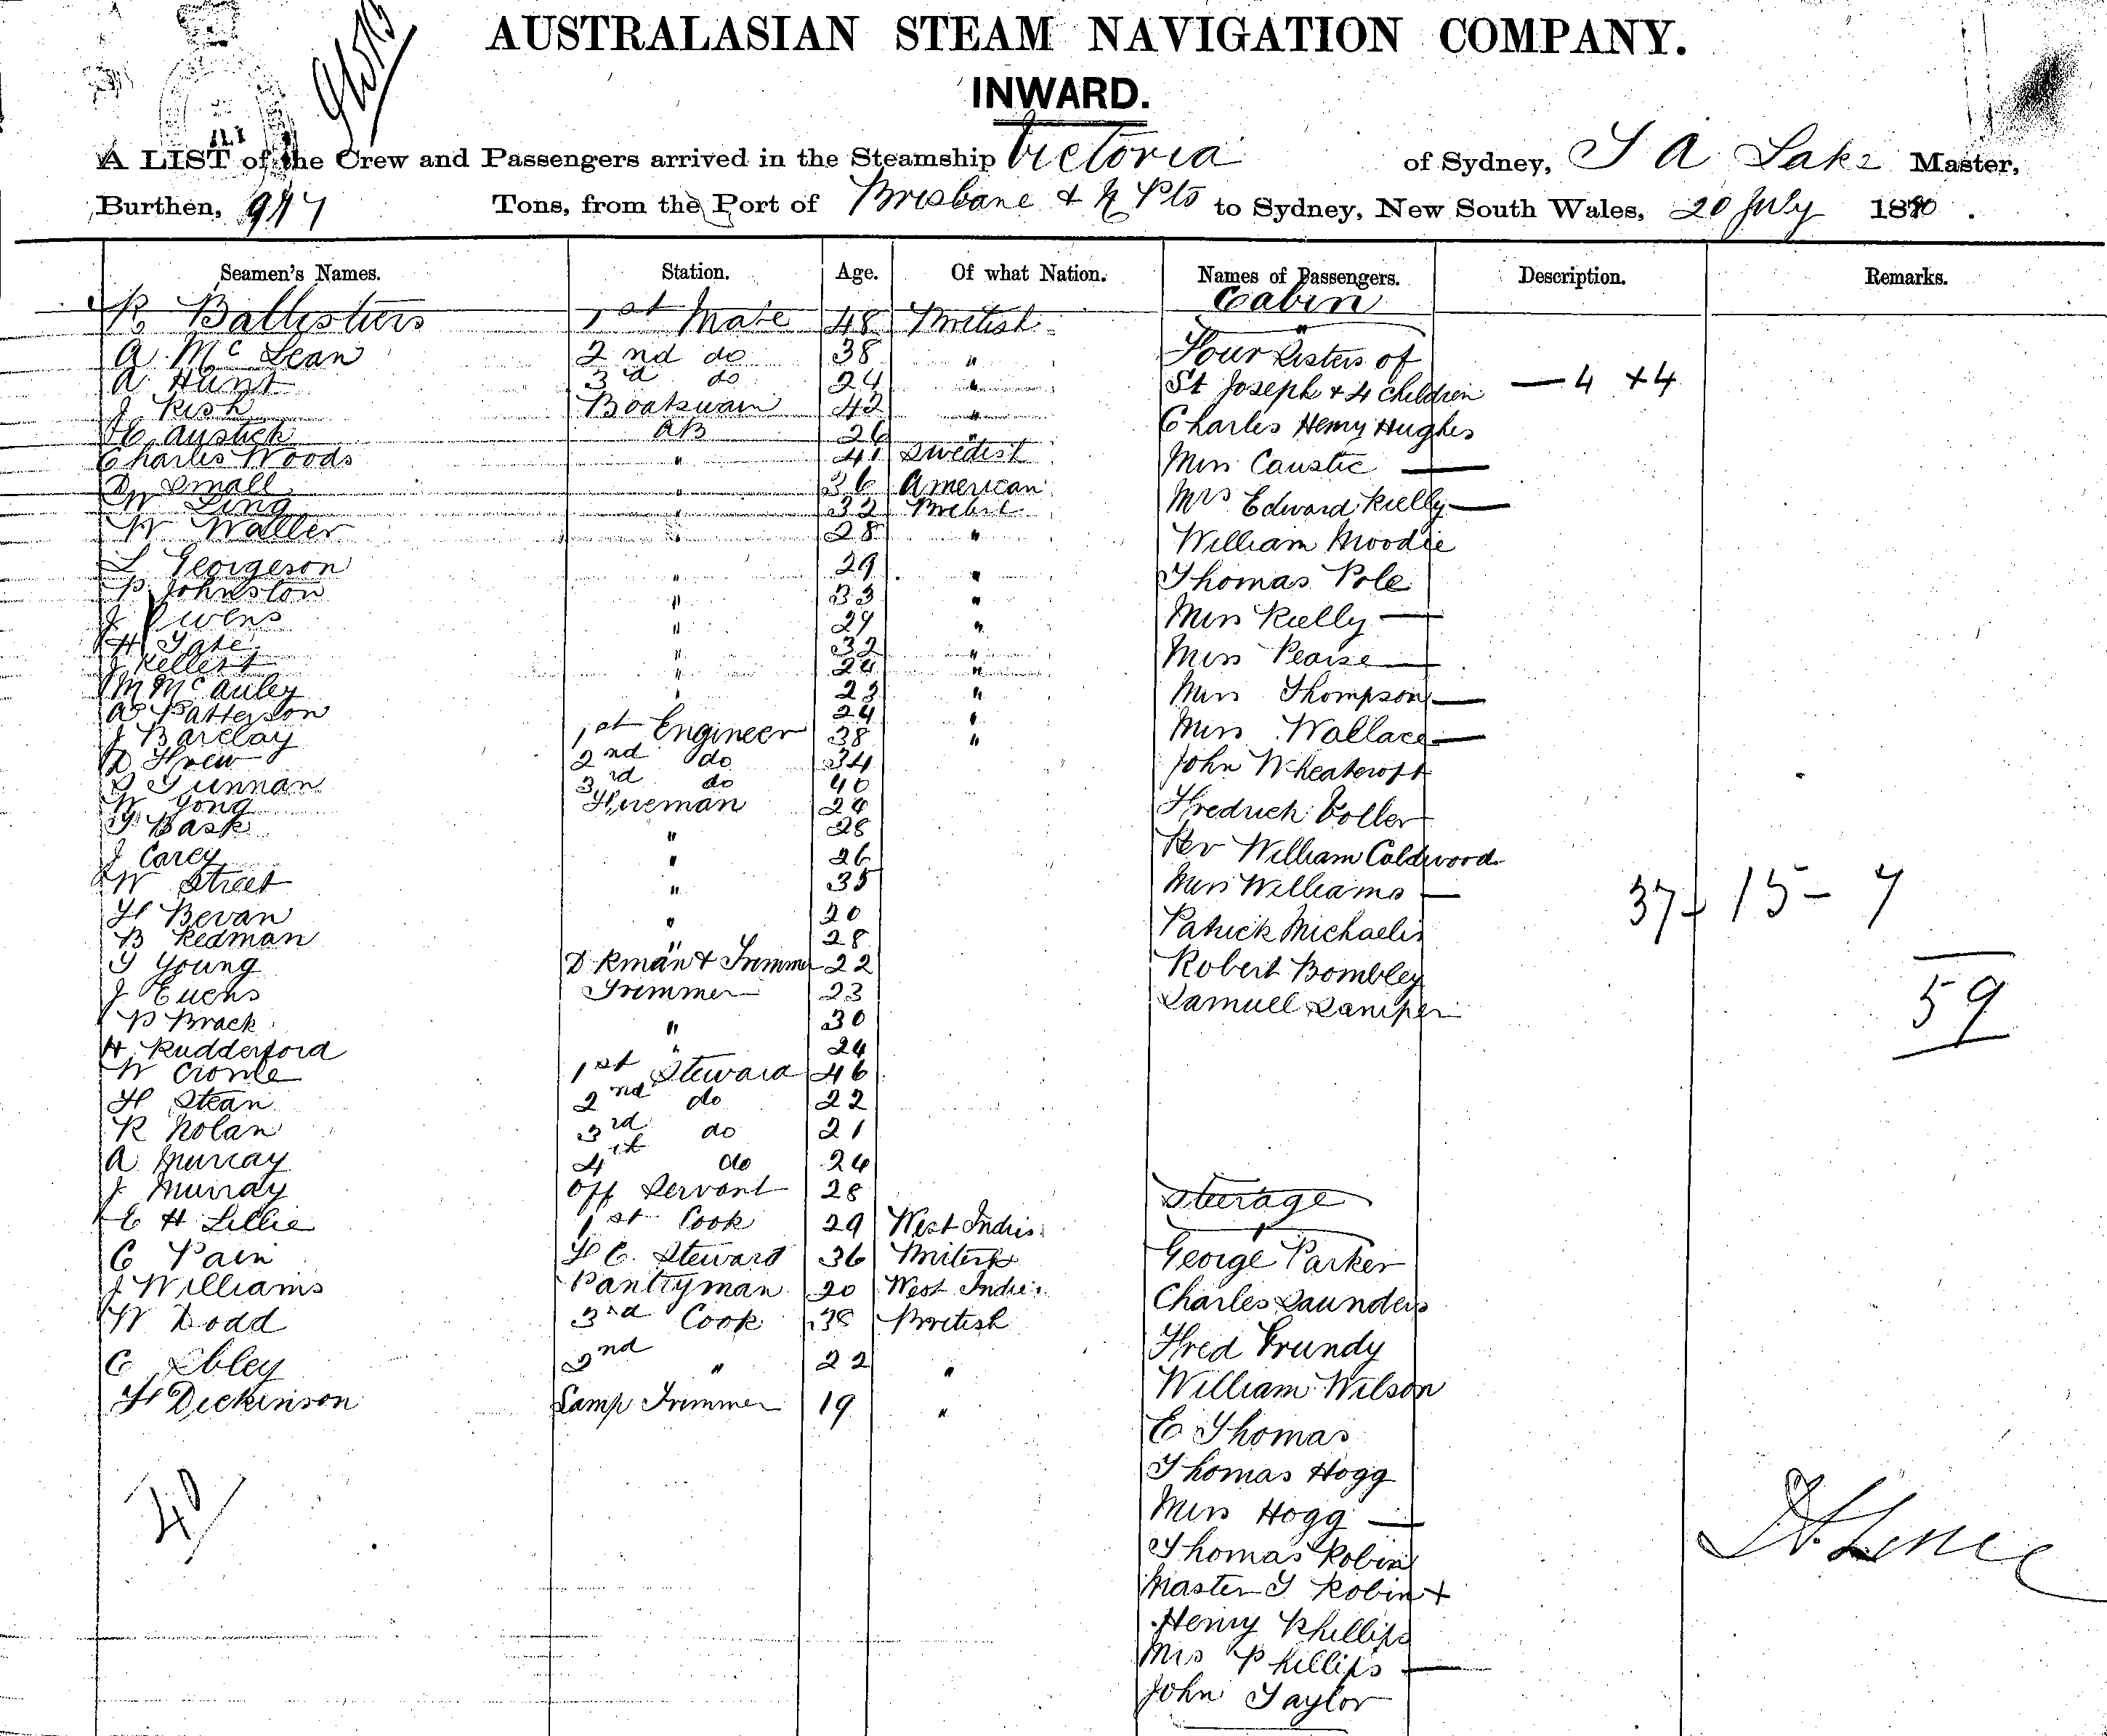 AUSTRALASIAN STEAM NAVIGATION COMPANY.
INWARD.
A LIST of the Crew and Passengers arrived in the Steamship Victoria of Sydney, J A Lake Master,
Burthen, Tons, from the Port of Brisbane & N Pts to Sydney, New South Wales, 20 July 18
Seamen's Names. Station. Age. Of what Nation. Names of Passengers. Description. Remarks.
Cabin
R 1st Mate 48 British
A McLean 2nd do 38 " Four Sisters of
A Hunt 3rd do 24 " St Joseph & 4 children — 4 + 4
J Boatswain 42 " Charles Henry Hughes
Austick AB 26 "
Charles Woods " 41 Swedish Miss Caustic —
D Small " 36 American Mrs Edward Kielly —
W 32 British
W Waller " 28 " William Moodie
L Georgeson " 29 " Thomas Pole
P Johnston " 33 "
J Owens " 27 " Miss Kielly —
H Tate " 32 " Miss Pearse —
J " 24 "
M McAuley " 23 " Miss Thompson —
A Patterson 24 "
J Barclay 1st Engineer 38 " Miss Wallace —
2nd do 34 John Wheatcroft
3rd do 40
W Yong Fireman 24 Fredrich Voller
J Bask " 28
J Carey " 26 Rev William Coldwood
W Street " 35 Miss Williams — 37 + 15 - 7
H Bevan " 20 Patrick Michaelis
B Redman " 28
J Young D Kman & Trimmer 22 Robert Bombley
J Trimmer 23 Samuel 59
P Brack " 30
H Rudderford " 24
W 1st Steward 46
H Stean 2nd do 22
R Nolan 3rd do 21
A Murray 4th do 24
J Murray Off Servant 28 Steerage
E H Lillie 1st Cook 29 West Indies
C Pain F C. Steward 36 British George Parker
J Williams Pantryman 20 West Indies Charles Saunders
W Dodd 3rd Cook 38 British
C Ebley 2nd " 22 " Fred Grundy
H Dickinson Lamp Trimmer 19 " William Wilson
E Thomas
Thomas Hogg
Miss Hogg —
Thomas Robin
Master J Robin +
Henry Phillips
Mrs Phillips —
John Taylor